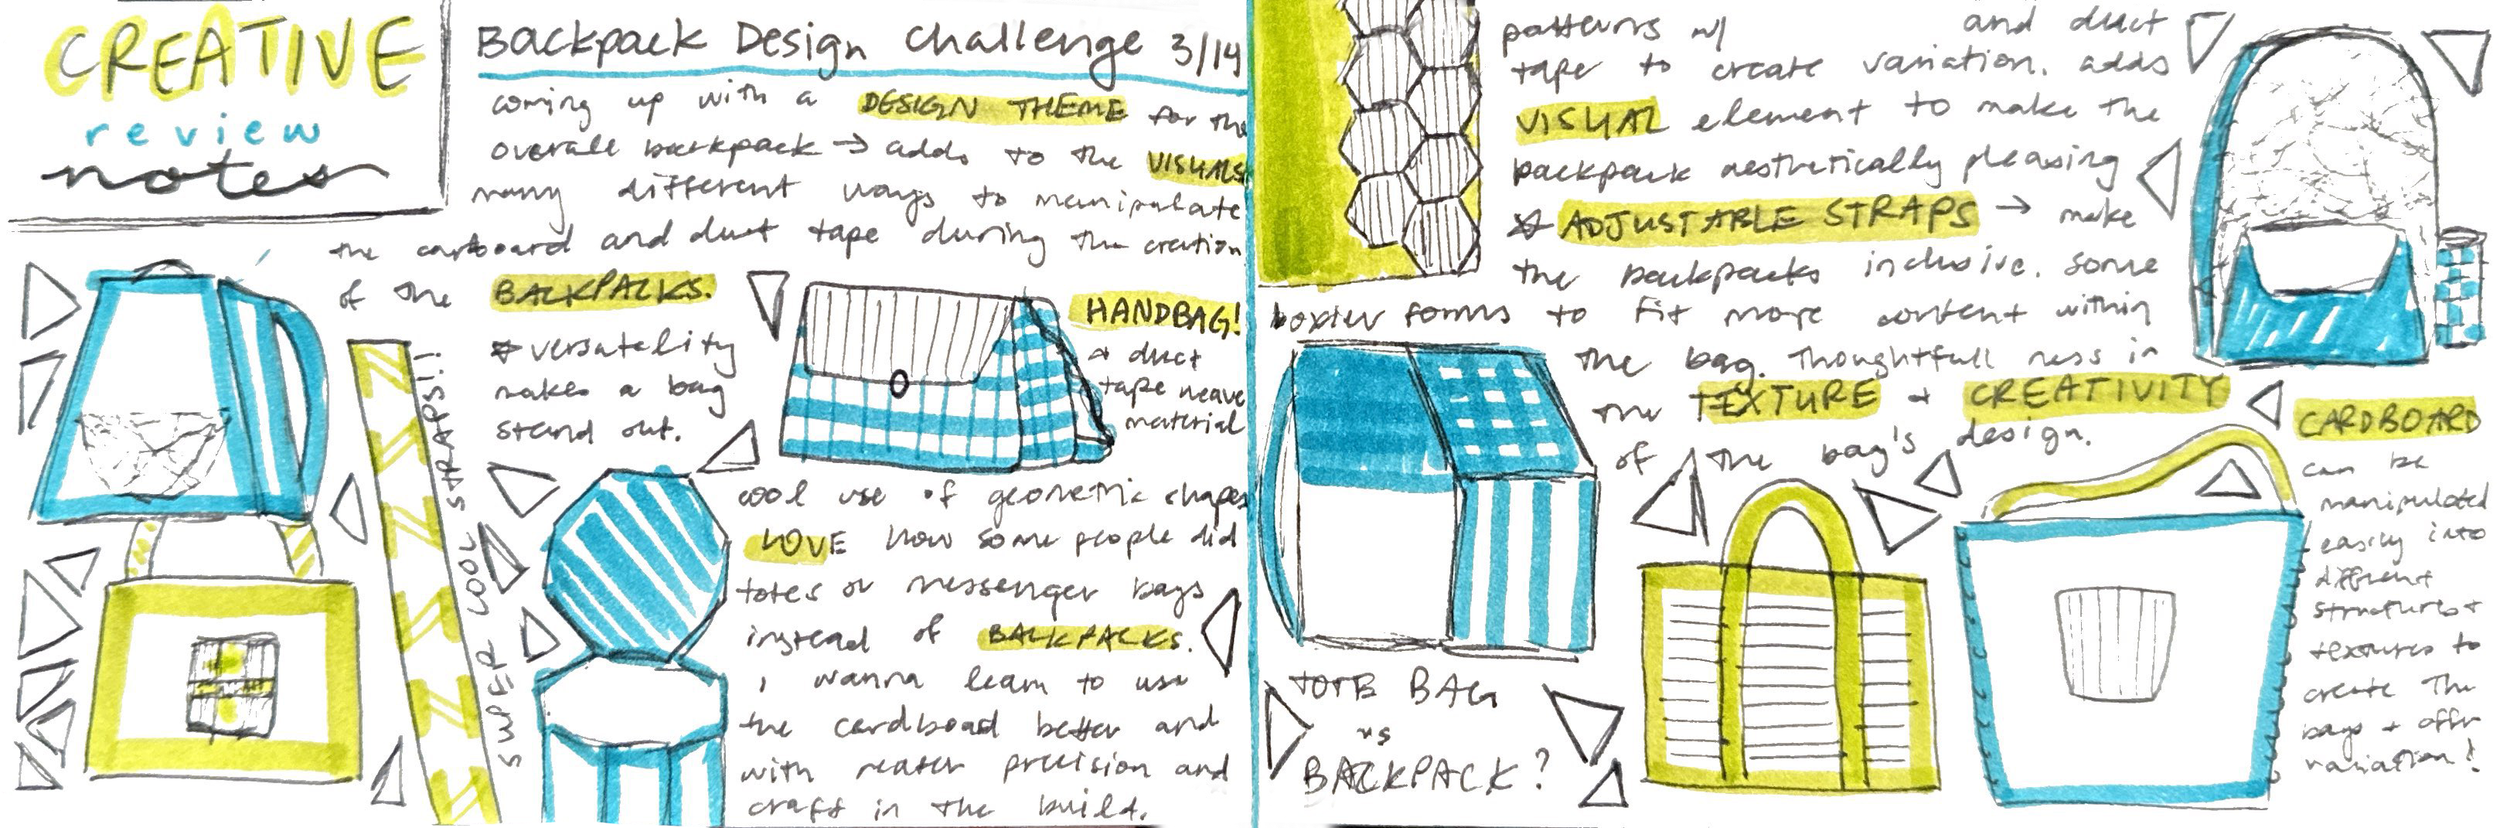 CREATIVE
review
notes
Backpack Design Challenge 3/14
coming up with a DESIGN THEME for the
overall backpack → adds to the VISUALS
many different ways to manipulate
the cardboard and duct tape during the creation
of the BACKPACKS.
* versatelity
makes a bag
stand out.
SUPER COOL STRAPS!!
HANDBAG!
+ duct
tape weave
material
cool use of geometric shapes
LOVE how some people did
totes or messenger bags
instead of BACKPACKS.
I wanna learn to use
the cardboad better and
with neater precision and
craft in the build.
patterns w/ and duct
tape to create variation. adds
VISUAL element to make the
backpack aesthetically pleasing
* ADJUSTABLE STRAPS → make
the backpacks inclusive. some
boxier forms to fit more content within
the bag. Thoughtfull ness in
the TEXTURE + CREATIVITY
of the bag's design.
TOTE BAG
vs
BACKPACK?
CARDBOARD
can be
manipulated
easily into
different
structures +
textures to
create the
bags + offr
variation!